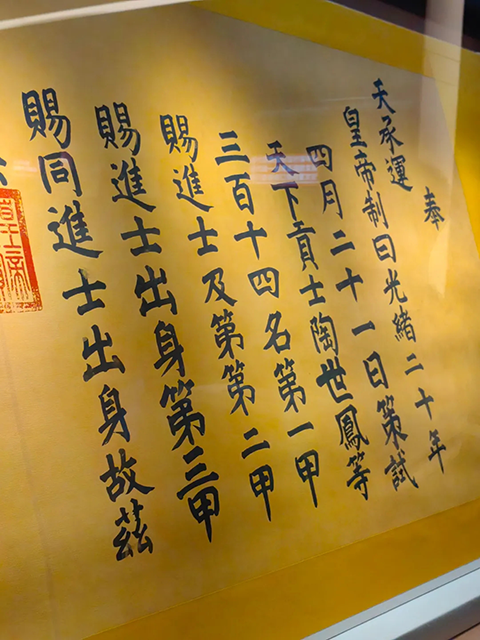 奉
天承運
皇帝制曰光緒二十年
四月二十一日策試
天下貢士陶世鳳等
三百十四名第一甲
賜進士及第第二甲
賜進士出身第三甲
賜同進士出身故茲